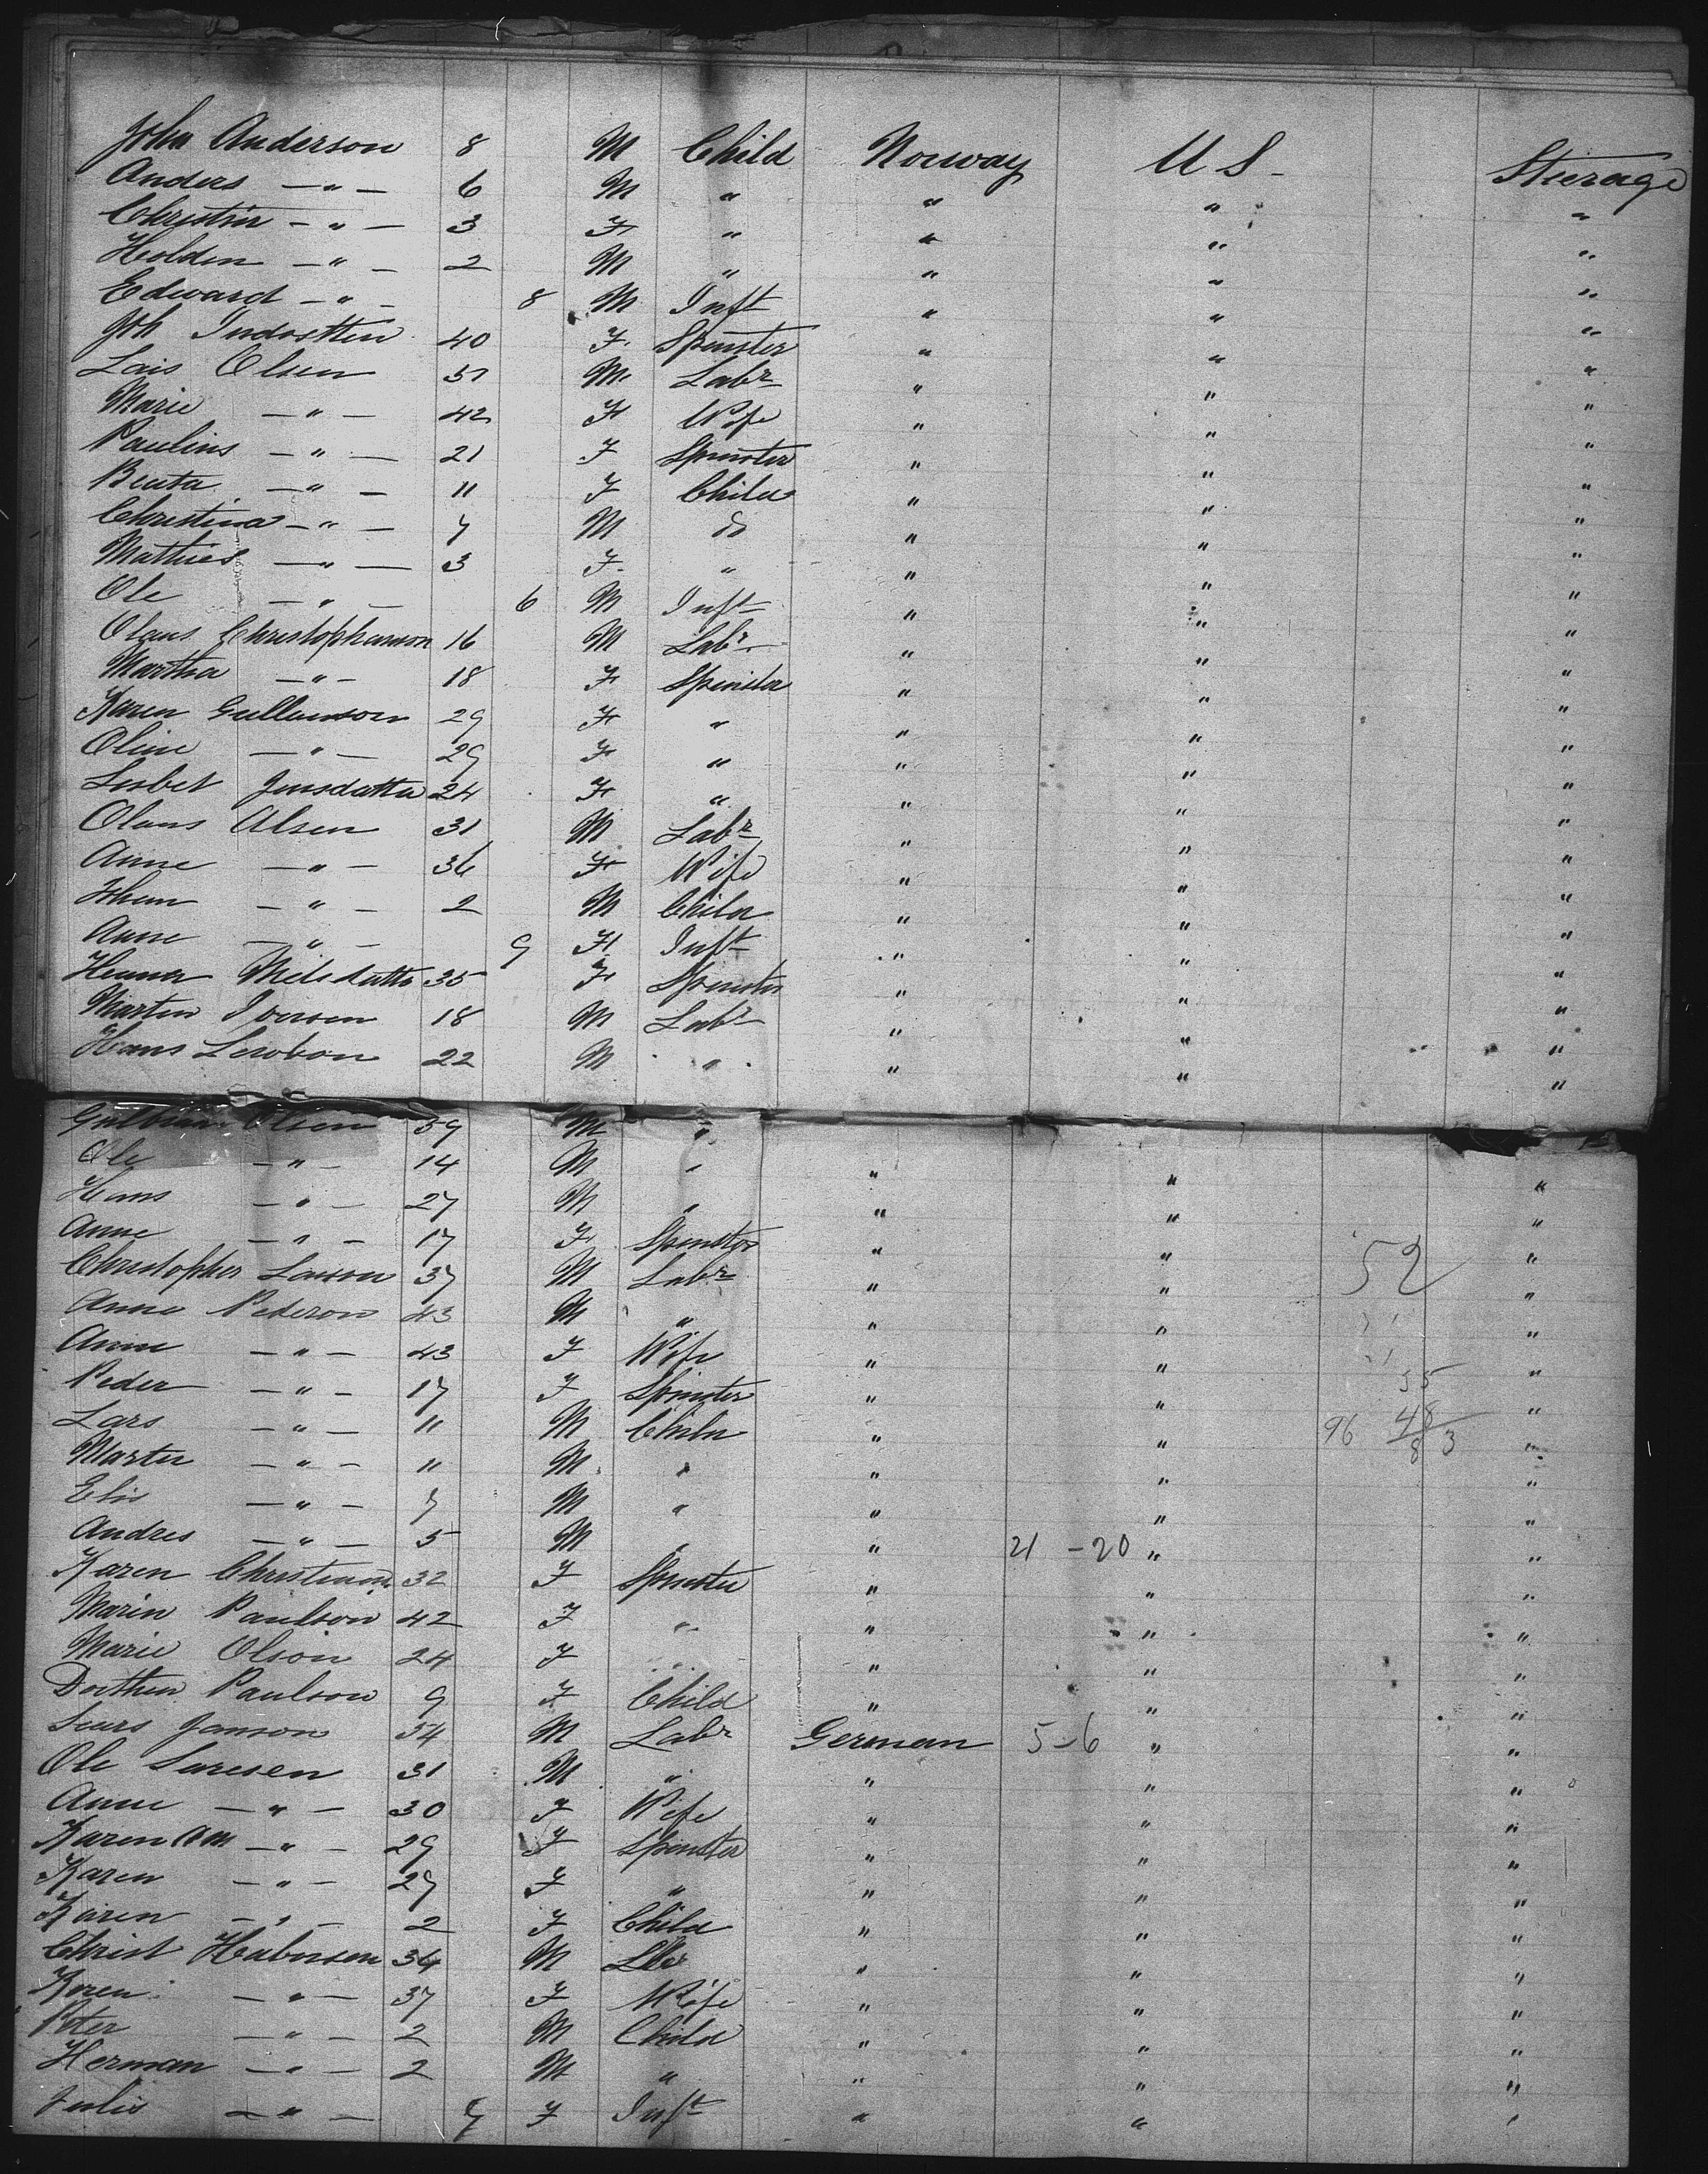 John Anderson 8 M Child Norway U S - Steerage
Anders — " — 6 M " " " "
Christin — " — 3 F " " " "
Holden — " — 2 M " " " "
Edward — " — 8 M Inft " " "
Joh 40 F. Spinster " " "
Lais Olsen M. Labr " " "
Marie — " — 42 F Wife " " "
Paulins — " — 21 F Spinster " " "
Beata — " — 11 F Child " " "
Christina — " — 7 M do " " "
Mathies — " — 3 F. " " " "
Ole — " — 6 M Inft " " "
Olaus Christophersson 16 M Labr " " "
Martha — " — 18 F Spinster " " "
Karen 29 F " " " "
Oline — " — 29 F " " " "
Lisbet Jensdatter 24 F " " " "
Olaus Olsen 31 M Labr " " "
Anne — " — 36 F Wife " " "
Johan — " — 2 M Child " " "
Anne — " — 9 F Inft " " "
35 F Spinster " " "
Martin Iversen 18 M Labr " " "
Hans 22 M " " " "
Olsen 39 M "
Ole — " — 14 M " " " "
Hans — " — 27 M " " " "
Anne — " — 17 F Spinster " " 52 "
Christopher Larson 37 M Labr " " "
Anne Pederson 43 M " " " "
Anne — " — 43 F Wife " " "
Peder — " — 17 F Spinster " " 35 "
Lars — " — 11 M Child " " 96 48 "
Martin — " — 11 M " " " 8 3 "
Elis — " — 7 M " " " "
Andres — " — 5 M " " 21 - 20 " "
Karen 32 F Spinster " " "
Marin Paulson 42 F " " " "
Marie Olson 24 F " " " "
Dorthea Paulson 9 F Child " " "
Janson 34 M Labr German 5-6 " "
Ole Larsen 31 M " " " "
Anne — " — 30 F Wife " " "
Karen AM — " — 29 F Spinster " " "
Karen — " — 27 F " " " "
Karen — " — 2 F Child " " "
Christ 34 M Lbr " " "
Karen — " — 37 F Wife " " "
Peter — " — 2 M Child " " "
Herman — " — 2 M " " " "
Julis — " — 9 F Inft " " "